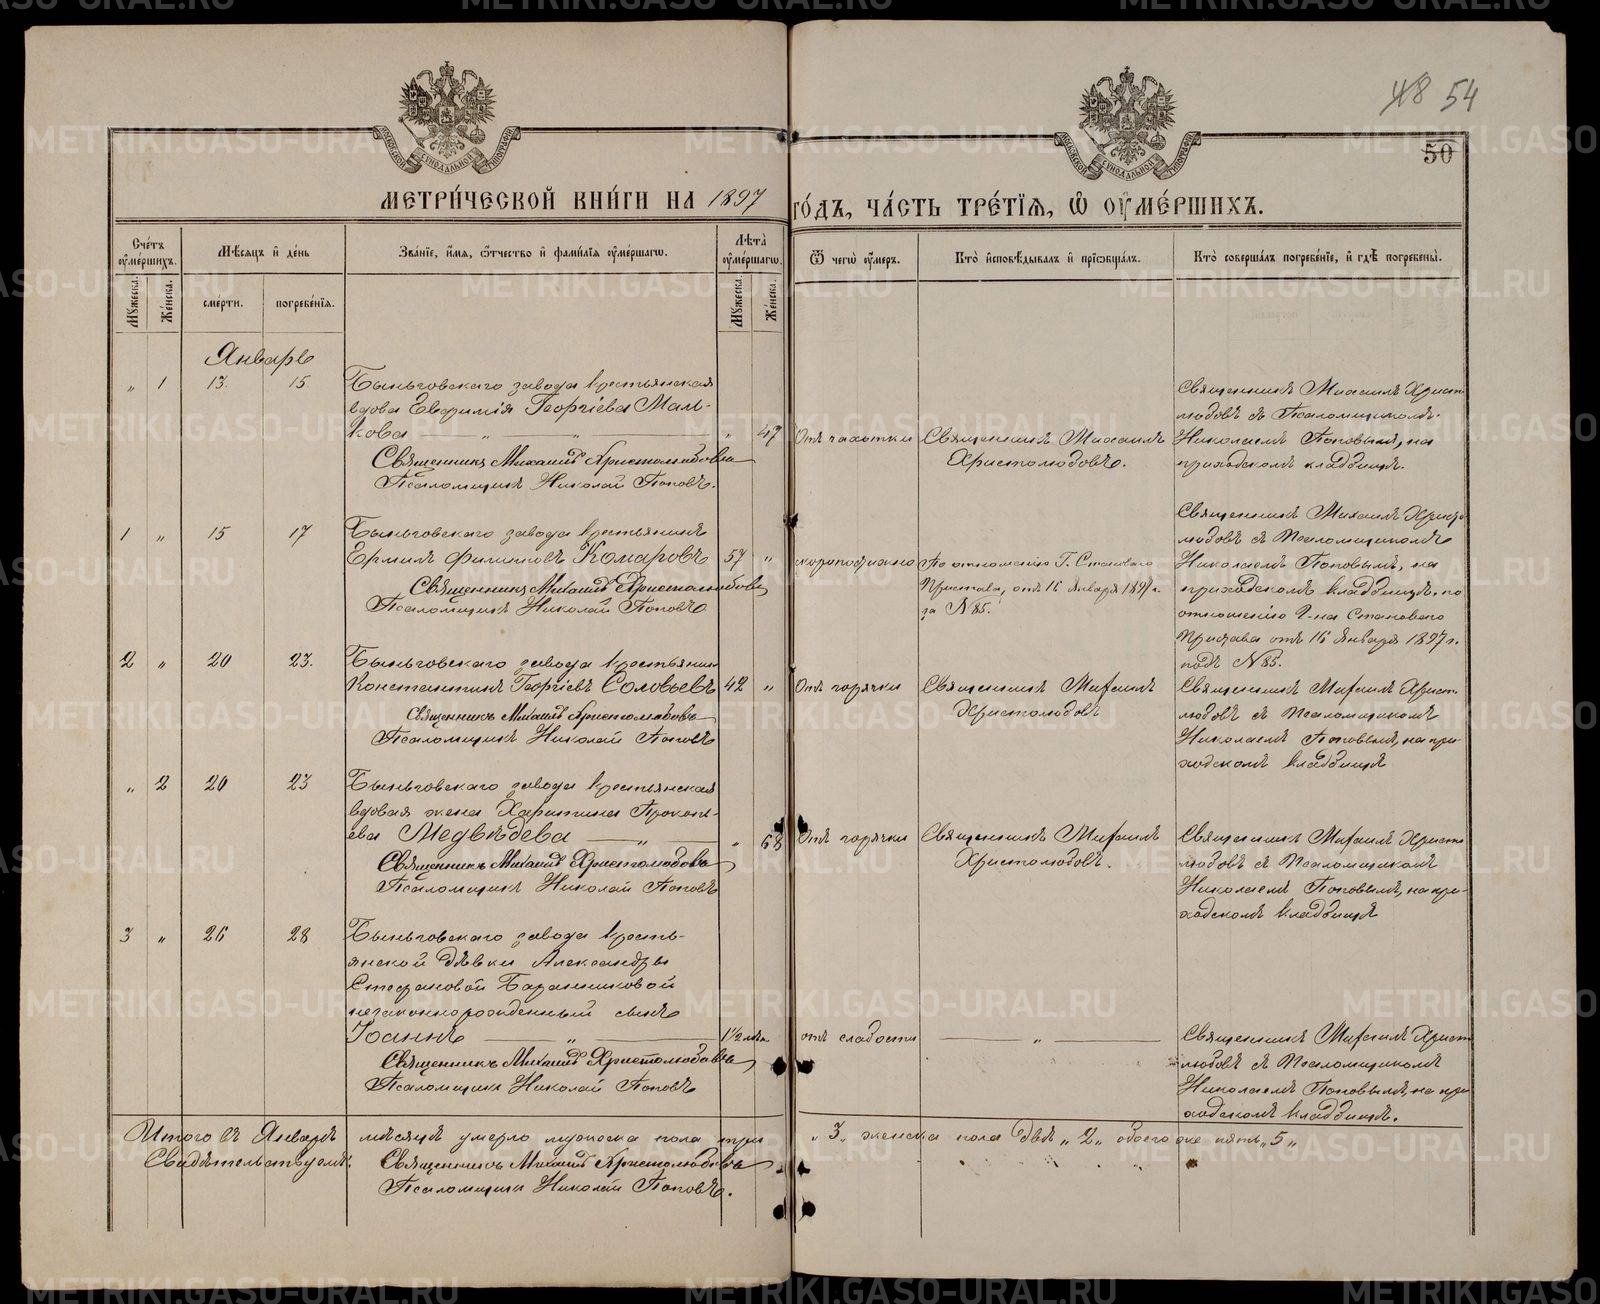 48 54
50
МЕТРИ́ЧЕСКОЙ КНИ́ГИ НА 1897 ГО́ДЪ, ЧА́СТЬ ТРЕ́ТІѦ, Ѡ ОУМЕ́РШИХЪ.
МОСКОВСКОЙ СУНОДАЛЬНОЙ ТИПОГРАФІИ
Сче́тъ оуме́ршихъ.
Мѣ́сяцъ и де́нь
Зва́ніе, и́мя, ѻ́тчество и фами́лія оуме́ршагѡ.
Лѣ́та оуме́ршагѡ.
Ѿ чегѡ̀ оу́меръ.
Кто̀ исповѣ́дывалъ и прїѡбща́лъ.
Кто̀ соверша́лъ погребе́ніе, и гдѣ̀ погребены̀.
Мꙋ́жеска.
Же́нска.
сме́рти.
погребе́нїѧ.
Мꙋ́жеска.
Же́нска.
Январь
„ 1 13. 15.
Быньговскаго завода крестьянская
вдова Евфимія Георгіева Маль-
кова „ „ „ 47
Священникъ Михаилъ Христолюбовъ
Псаломщикъ Николай Поповъ.
Отъ чахотки
Священникъ Михаилъ
Христолюбовъ.
Священникъ Михаилъ Христо
любовъ съ Псаломщикомъ
Николаемъ Поповымъ, на
приходскомъ кладбищѣ.
1 „ 15 17
Быньговскаго завода крестьянинъ
Ермилъ Филиповъ Комаровъ 57 „
Священникъ Михаилъ Христолюбовъ
Псаломщикъ Николай Поповъ
скоропостижно
По отношенію Г. Становаго
Пристава, отъ 16 Января 1897 г.
за № 85.
Священникъ Михаилъ Христо
любовъ съ Псаломщикомъ
Николаемъ Поповымъ, на
приходскомъ кладбищѣ, по
отношенію Г-на Становаго
Пристава отъ 16 Января 1897 г.
подъ № 85.
2 „ 20 23.
Быньговскаго завода крестьянинъ
Константинъ Георгіевъ Соловьевъ 42 „
Священникъ Михаилъ Христолюбовъ
Псаломщикъ Николай Поповъ
Отъ горячки
Священникъ Михаилъ
Христолюбовъ
Священникъ Михаилъ Христо
любовъ съ Псаломщикомъ
Николаемъ Поповымъ, на при-
ходскомъ кладбищѣ
„ 2 20 23
Быньговскаго завода крестьянская
вдовая жена Харитина Прокопь-
ева Медвѣдева „ „ 68
Священникъ Михаилъ Христолюбовъ
Псаломщикъ Николай Поповъ
Отъ горячки
Священникъ Михаилъ
Христолюбовъ.
Священникъ Михаилъ Христо
любовъ съ Псаломщикомъ
Николаемъ Поповымъ, на при-
ходскомъ кладбищѣ
3 „ 26 28
Быньговскаго завода кресть-
янской дѣвки Александры
Стефановой Баранниковой
незаконнорожденный сынъ
Іоаннъ „ 1½ лѣта
Священникъ Михаилъ Христолюбовъ
Псаломщикъ Николай Поповъ
отъ слабости „
Священникъ Михаилъ Христо
любовъ съ Псаломщикомъ
Николаемъ Поповымъ, на при
ходскомъ кладбищѣ.
Итого въ Январѣ мѣсяцѣ умерло мужеска пола три „3„ женска пола двѣ „2„ обоего же пять „5„
Свидѣтельствуемъ: Священникъ Михаилъ Христолюбовъ
Псаломщикъ Николай Поповъ.
METRIKI.GASO-URAL.RU